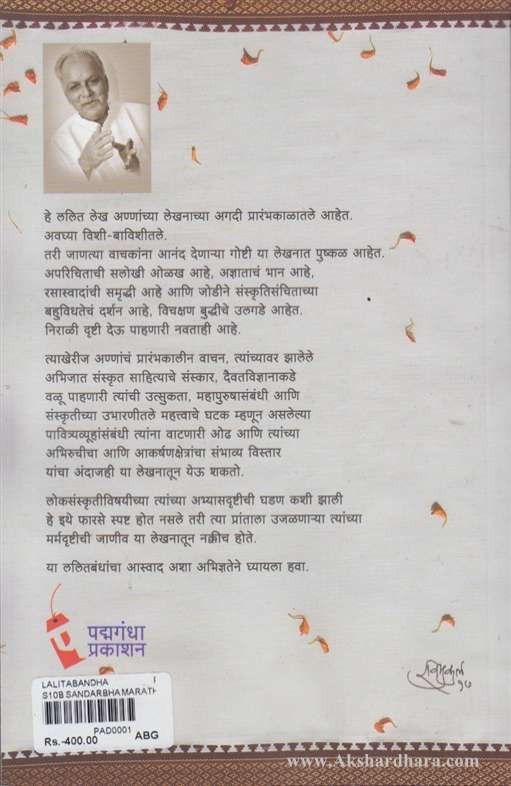 हे ललित लेख अण्णांच्या लेखनाच्या अगदी प्रारंभकाळातले आहेत.
अवघ्या विशी-बाविशीतले.
तरी जाणत्या वाचकांना आनंद देणाऱ्या गोष्टी या लेखनात पुष्कळ आहेत.
अपरिचिताची सलोखी ओळख आहे, अज्ञाताचं भान आहे,
रसास्वादांची समृद्धी आहे आणि जोडीने संस्कृतिसंचिताच्या
बहुविधतेचं दर्शन आहे, विचक्षण बुद्धीचे उलगडे आहेत.
निराळी दृष्टी देऊ पाहणारी नवताही आहे.
त्याखेरीज अण्णांचं प्रारंभकालीन वाचन, त्यांच्यावर झालेले
अभिजात संस्कृत साहित्याचे संस्कार, दैवतविज्ञानाकडे
वळू पाहणारी त्यांची उत्सुकता, महापुरुषासंबंधी आणि
संस्कृतीच्या उभारणीतले महत्त्वाचे घटक म्हणून असलेल्या
पावित्र्यव्यूहांसंबंधी त्यांना वाटणारी ओढ आणि त्यांच्या
अभिरुचीचा आणि आकर्षणक्षेत्रांचा संभाव्य विस्तार
यांचा अंदाजही या लेखनातून येऊ शकतो.
लोकसंस्कृतीविषयीच्या त्यांच्या अभ्यासदृष्टीची घडण कशी झाली
हे इथे फारसे स्पष्ट होत नसले तरी त्या प्रांताला उजळणाऱ्या त्यांच्या
मर्मदृष्टीची जाणीव या लेखनातून नक्कीच होते.
या ललितबंधांचा आस्वाद अशा अभिज्ञतेने घ्यायला हवा.
पद्मगंधा
प्रकाशन
LALITABANDHA
S10B SANDARBHA MARATH
PAD0001
Rs.-400.00 ABG
www.Akshardhara.com